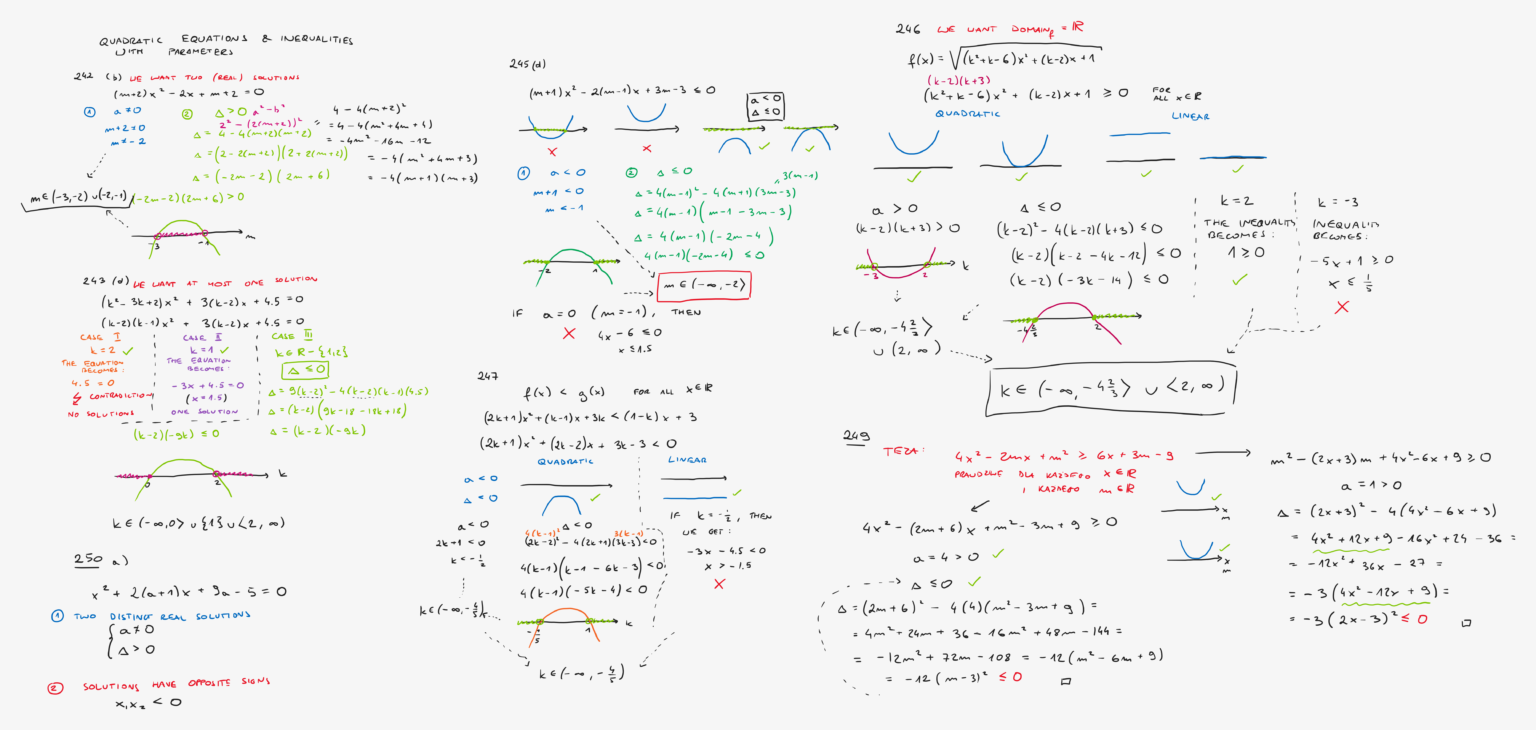 QUADRATIC EQUATIONS & INEQUALITIES
WITH PARAMETERS
242 (b) WE WANT TWO (REAL) SOLUTIONS
(m+2)x² - 2x + m+2 = 0
① a≠0
m+2≠0
m≠-2
② Δ>0 a²-b²
2² - (2(m+2))²
Δ = 4 - 4(m+2)(m+2)
Δ = (2-2(m+2))(2+2(m+2))
Δ = (-2m-2)(2m+6)
4 - 4(m+2)²
= 4 - 4(m²+4m+4)
= -4m² - 16m - 12
= -4(m²+4m+3)
= -4(m+1)(m+3)
m∈(-3,-2)∪(-2,-1)
(-2m-2)(2m+6) > 0
-3 -1 m
243 (d) WE WANT AT MOST ONE SOLUTION
(k²-3k+2)x² + 3(k-2)x + 4.5 = 0
(k-2)(k-1)x² + 3(k-2)x + 4.5 = 0
CASE I
k=2 ✓
THE EQUATION
BECOMES:
4.5 = 0
CONTRADICTION
NO SOLUTIONS
CASE II
k=1 ✓
THE EQUATION
BECOMES:
-3x + 4.5 = 0
(x=1.5)
ONE SOLUTION
CASE III
k∈R-{1,2}
Δ ≤ 0
Δ = 9(k-2)² - 4(k-2)(k-1)(4.5)
Δ = (k-2)(9k-18-18k+18)
Δ = (k-2)(-9k)
(k-2)(-9k) ≤ 0
0 2 k
k∈(-∞,0⟩∪{1}∪⟨2,∞)
250 a)
x² + 2(a+1)x + 9a - 5 = 0
① TWO DISTINCT REAL SOLUTIONS
{ a≠0
Δ>0
② SOLUTIONS HAVE OPPOSITE SIGNS
x₁x₂ < 0
245 (d)
(m+1)x² - 2(m-1)x + 3m-3 ≤ 0
a<0
Δ≤0
① a<0
m+1<0
m<-1
② Δ≤0
3(m-1)
Δ = 4(m-1)² - 4(m+1)(3m-3)
Δ = 4(m-1)(m-1-3m-3)
Δ = 4(m-1)(-2m-4)
4(m-1)(-2m-4) ≤ 0
-2 1
m∈(-∞,-2⟩
IF a=0 (m=-1), THEN
4x-6 ≤ 0
x ≤ 1.5
247
f(x) < g(x) FOR ALL x∈R
(2k+1)x² + (k-1)x + 3k < (1-k)x + 3
(2k+1)x² + (2k-2)x + 3k-3 < 0
QUADRATIC
LINEAR
a<0
Δ<0
a<0
2k+1<0
k<-1/2
Δ<0
4(k-1)² 3(k-1)
(2k-2)² - 4(2k+1)(3k-3) < 0
4(k-1)(k-1-6k-3) < 0
4(k-1)(-5k-4) < 0
-4/5 1 k
IF k=-1/2, THEN
WE GET:
-3x - 4.5 < 0
x > -1.5
k∈(-∞,-4/5)
k∈(-∞,-4/5)
246 WE WANT DOMAINf = R
f(x) = √((k²+k-6)x² + (k-2)x + 1)
(k-2)(k+3)
(k²+k-6)x² + (k-2)x + 1 ≥ 0 FOR
ALL x∈R
QUADRATIC
LINEAR
a>0
(k-2)(k+3) > 0
-3 2 k
k∈(-∞,-4 2/3⟩
∪(2,∞)
Δ≤0
(k-2)² - 4(k-2)(k+3) ≤ 0
(k-2)(k-2-4k-12) ≤ 0
(k-2)(-3k-14) ≤ 0
-4 2/3 2
k=2
THE INEQUALITY
BECOMES:
1 ≥ 0
k=-3
INEQUALITY
BECOMES:
-5x+1 ≥ 0
x ≤ 1/5
k∈(-∞,-4 2/3⟩∪⟨2,∞)
249
TEZA: 4x² - 2mx + m² ≥ 6x + 3m - 9
PRAWDZIWE DLA KAŻDEGO x∈R
I KAŻDEGO m∈R
4x² - (2m+6)x + m² - 3m + 9 ≥ 0
a=4>0 ✓
Δ≤0 ✓
Δ = (2m+6)² - 4(4)(m²-3m+9) =
= 4m² + 24m + 36 - 16m² + 48m - 144 =
= -12m² + 72m - 108 = -12(m²-6m+9)
= -12(m-3)² ≤ 0 □
m² - (2x+3)m + 4x² - 6x + 9 ≥ 0
a=1>0
x
m
x
m
Δ = (2x+3)² - 4(4x²-6x+9)
= 4x² + 12x + 9 - 16x² + 24 - 36 =
= -12x² + 36x - 27 =
= -3(4x² - 12x + 9) =
= -3(2x-3)² ≤ 0 □